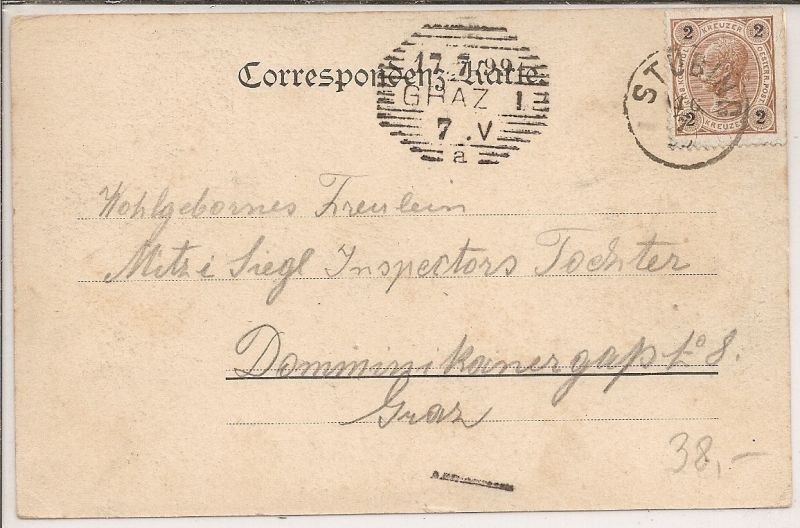 Correspondenz-Karte.
17.7.99
GRAZ 1
7.V
a
2 KREUZER 2
2 KREUZER 2
STÜBING
Wohlgebornes Freulein
Mitzi Siegl Inspectors Tochter
Domminikanergaße 8.
Graz
38,-